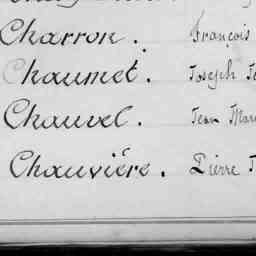 Charron. François
Chaumet. Joseph
Chauvel. Jean
Chauvière. Pierre